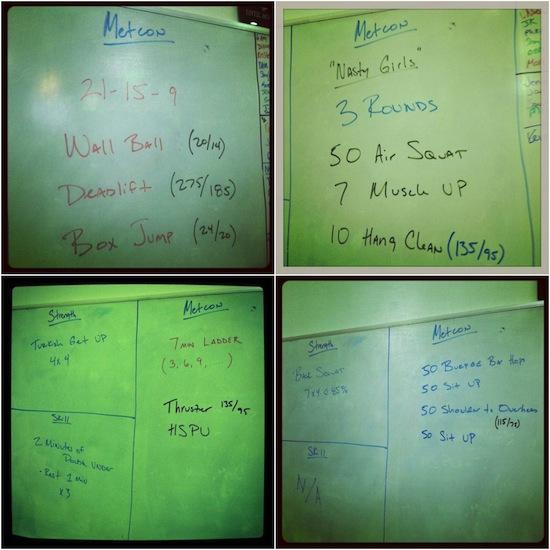 Metcon
21-15-9
Wall Ball (20/14)
Deadlift (275/185)
Box Jump (24/20)
Metcon
"Nasty Girls"
3 Rounds
50 Air Squat
7 Muscle UP
10 Hang Clean (135/95)
Strength
Turkish Get UP
4x4
Skill
2 Minutes of
Double Under
- Rest 1 Min
x3
Metcon
7 min LADDER
(3, 6, 9, ... )
Thruster 135/95
HSPU
Strength
Back Squat
7x4 @ 85%
Skill
N/A
Metcon
50 Burpee Bar Hops
50 Sit UP
50 Shoulder to Overhead
(115/75)
50 Sit UP